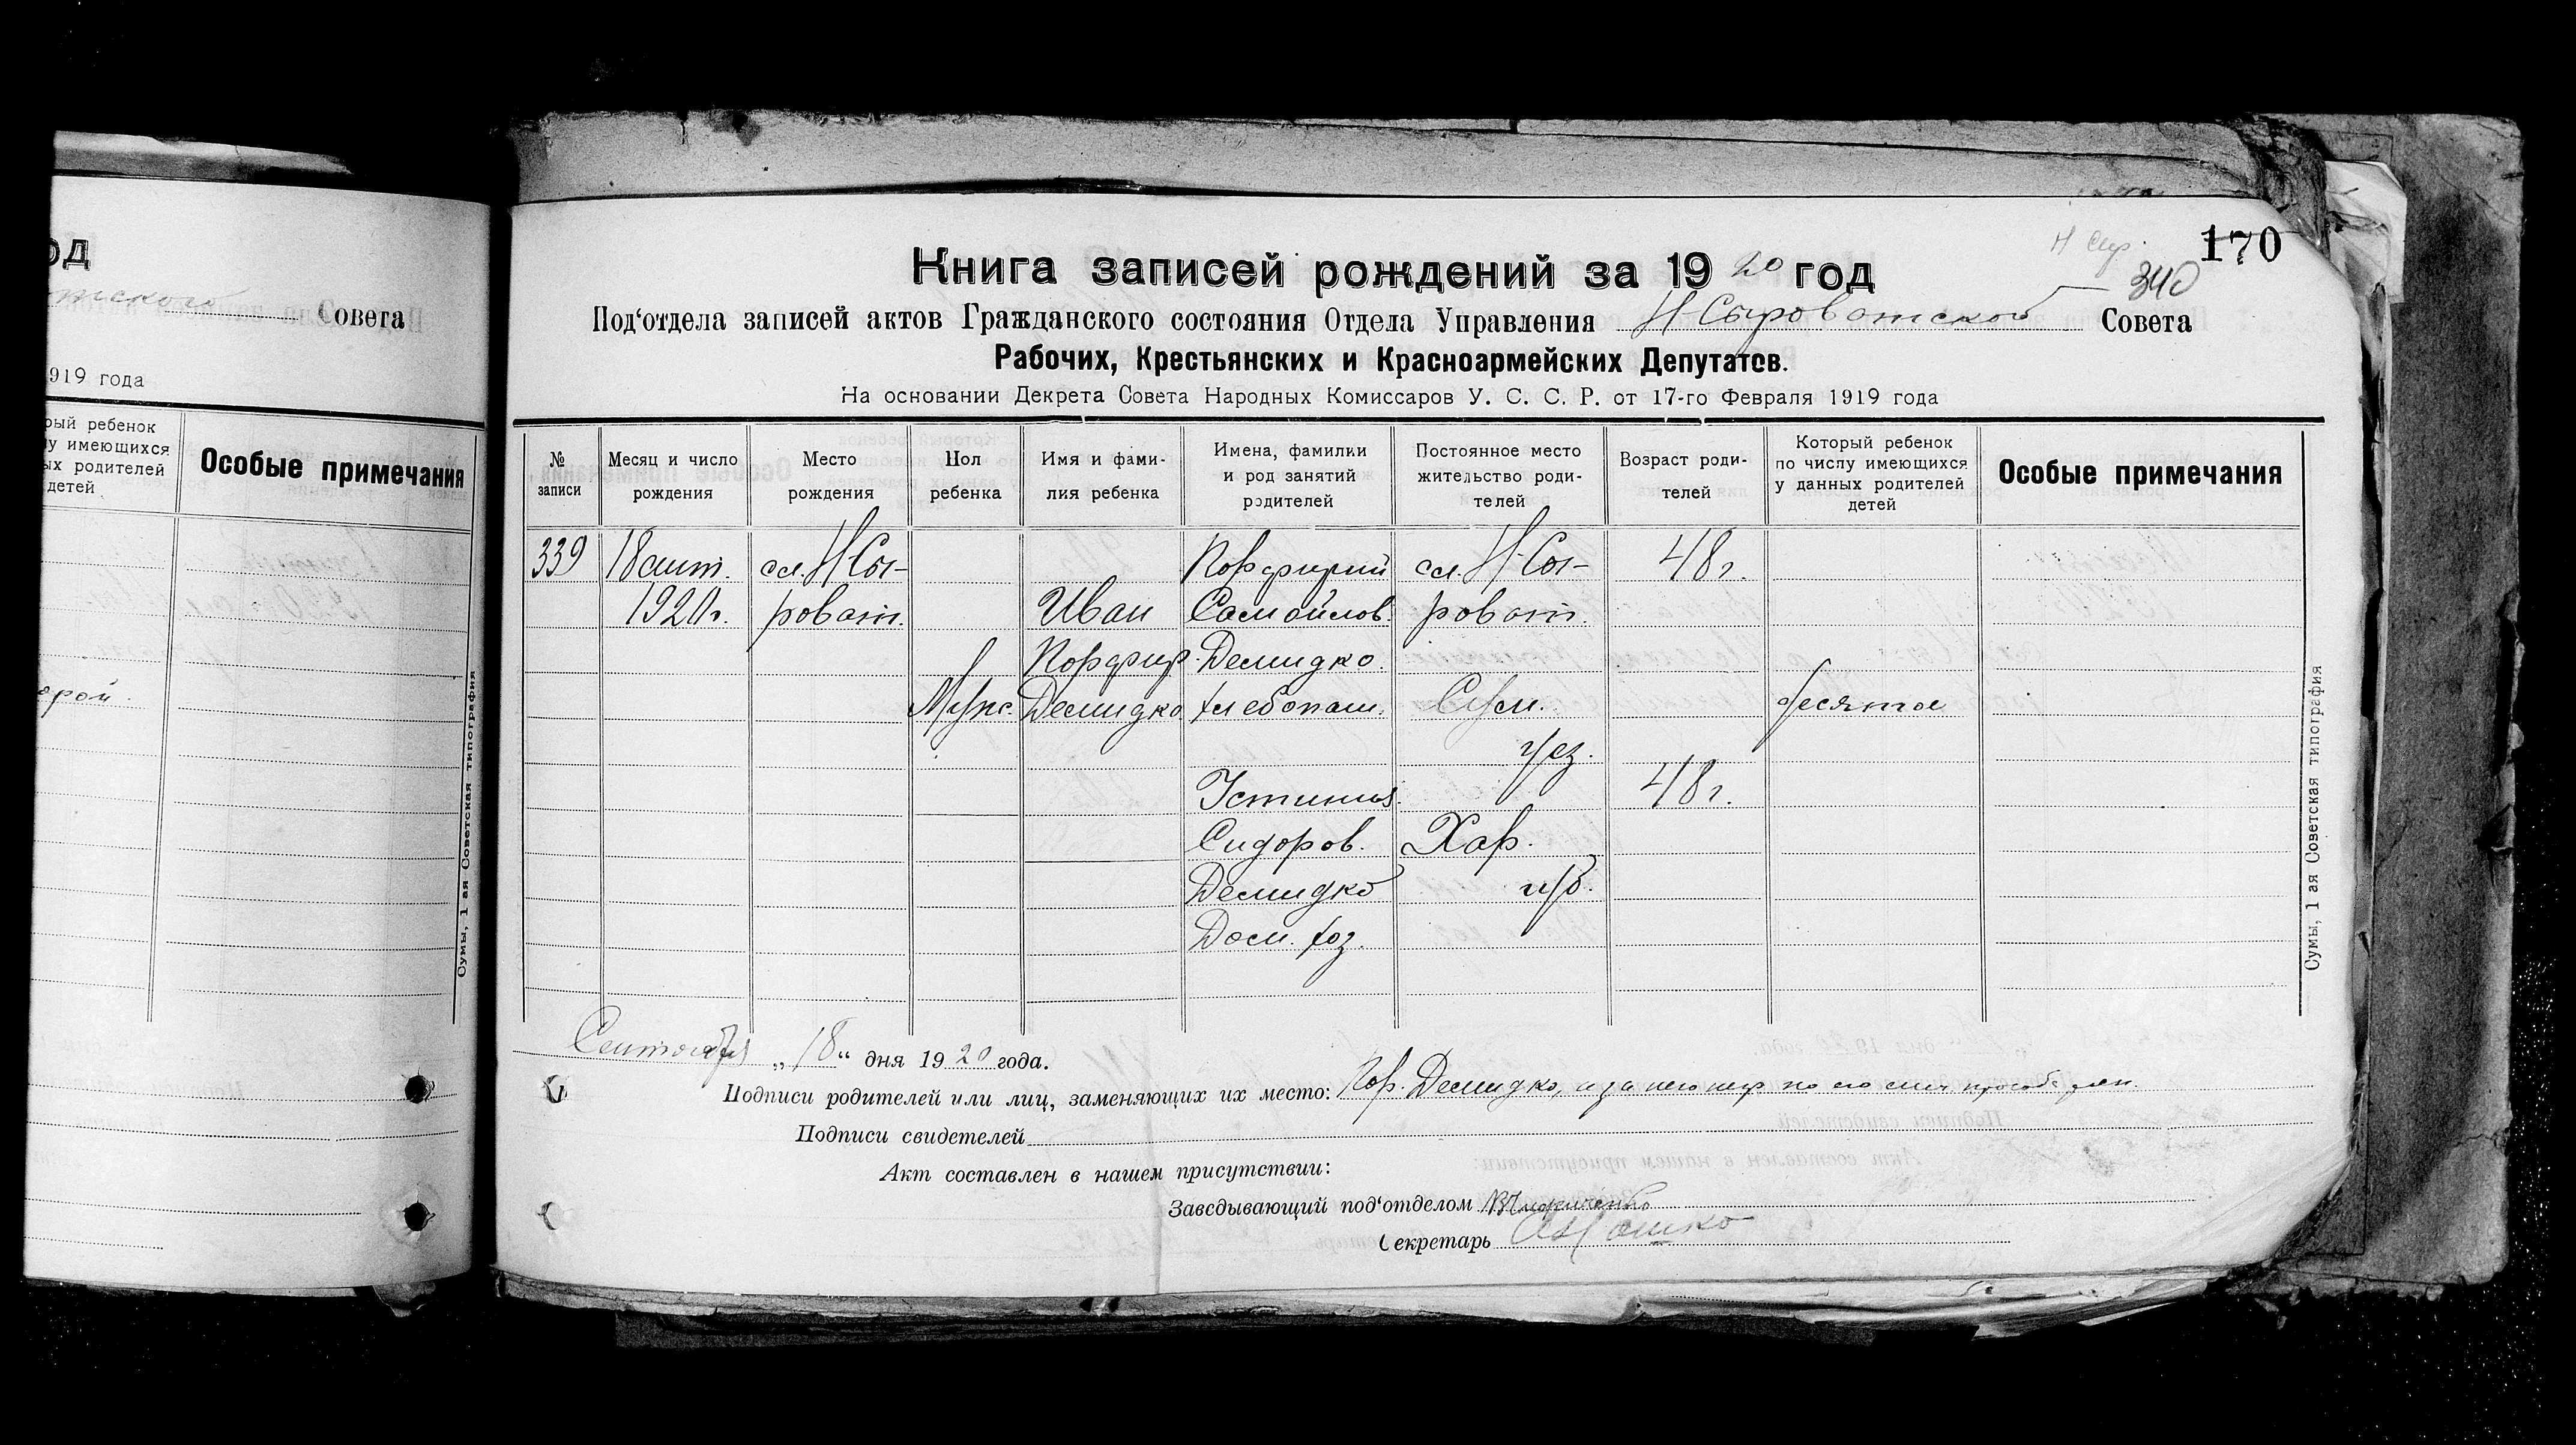 од
тского Совета
919 года
рый ребенок
у имеющихся
ых родителей
детей
Особые примечания
ерой.
Сумы, 1 ая Советская типография
170
340
Книга записей рождений за 1920 год
Под'отдела записей актов Гражданского состояния Отдела Управления Н-Сыроватского Совета
Рабочих, Крестьянских и Красноармейских Депутатов.
На основании Декрета Совета Народных Комиссаров У. С. С. Р. от 17-го Февраля 1919 года
№ записи
Месяц и число рождения
Место рождения
Пол ребенка
Имя и фами-
лия ребенка
Имена, фамилии
и род занятий
родителей
Постоянное место
жительство роди-
телей
Возраст роди-
телей
Который ребенок
по числу имеющихся
у данных родителей
детей
Особые примечания
339 18 сент. сл. Н-Сы- Порфирий сл. Н-Сы- 48 г.
1920 г. роват. Иван Самойлов. роват.
Порфир. Демидко.
Мужс. Демидко хлебопаш. Сум. десятое
уез.
Устиния 48 г.
Сидоров. Хар.
Демидко губ.
Дом. хоз.
Сентября „18“ дня 1920 года.
Подписи родителей или лиц, заменяющих их место: Пор. Демидко, а за него
Подписи свидетелей
Акт составлен в нашем присутствии:
Заведывающий под'отделом
Секретарь
Сумы, 1 ая Советская типография